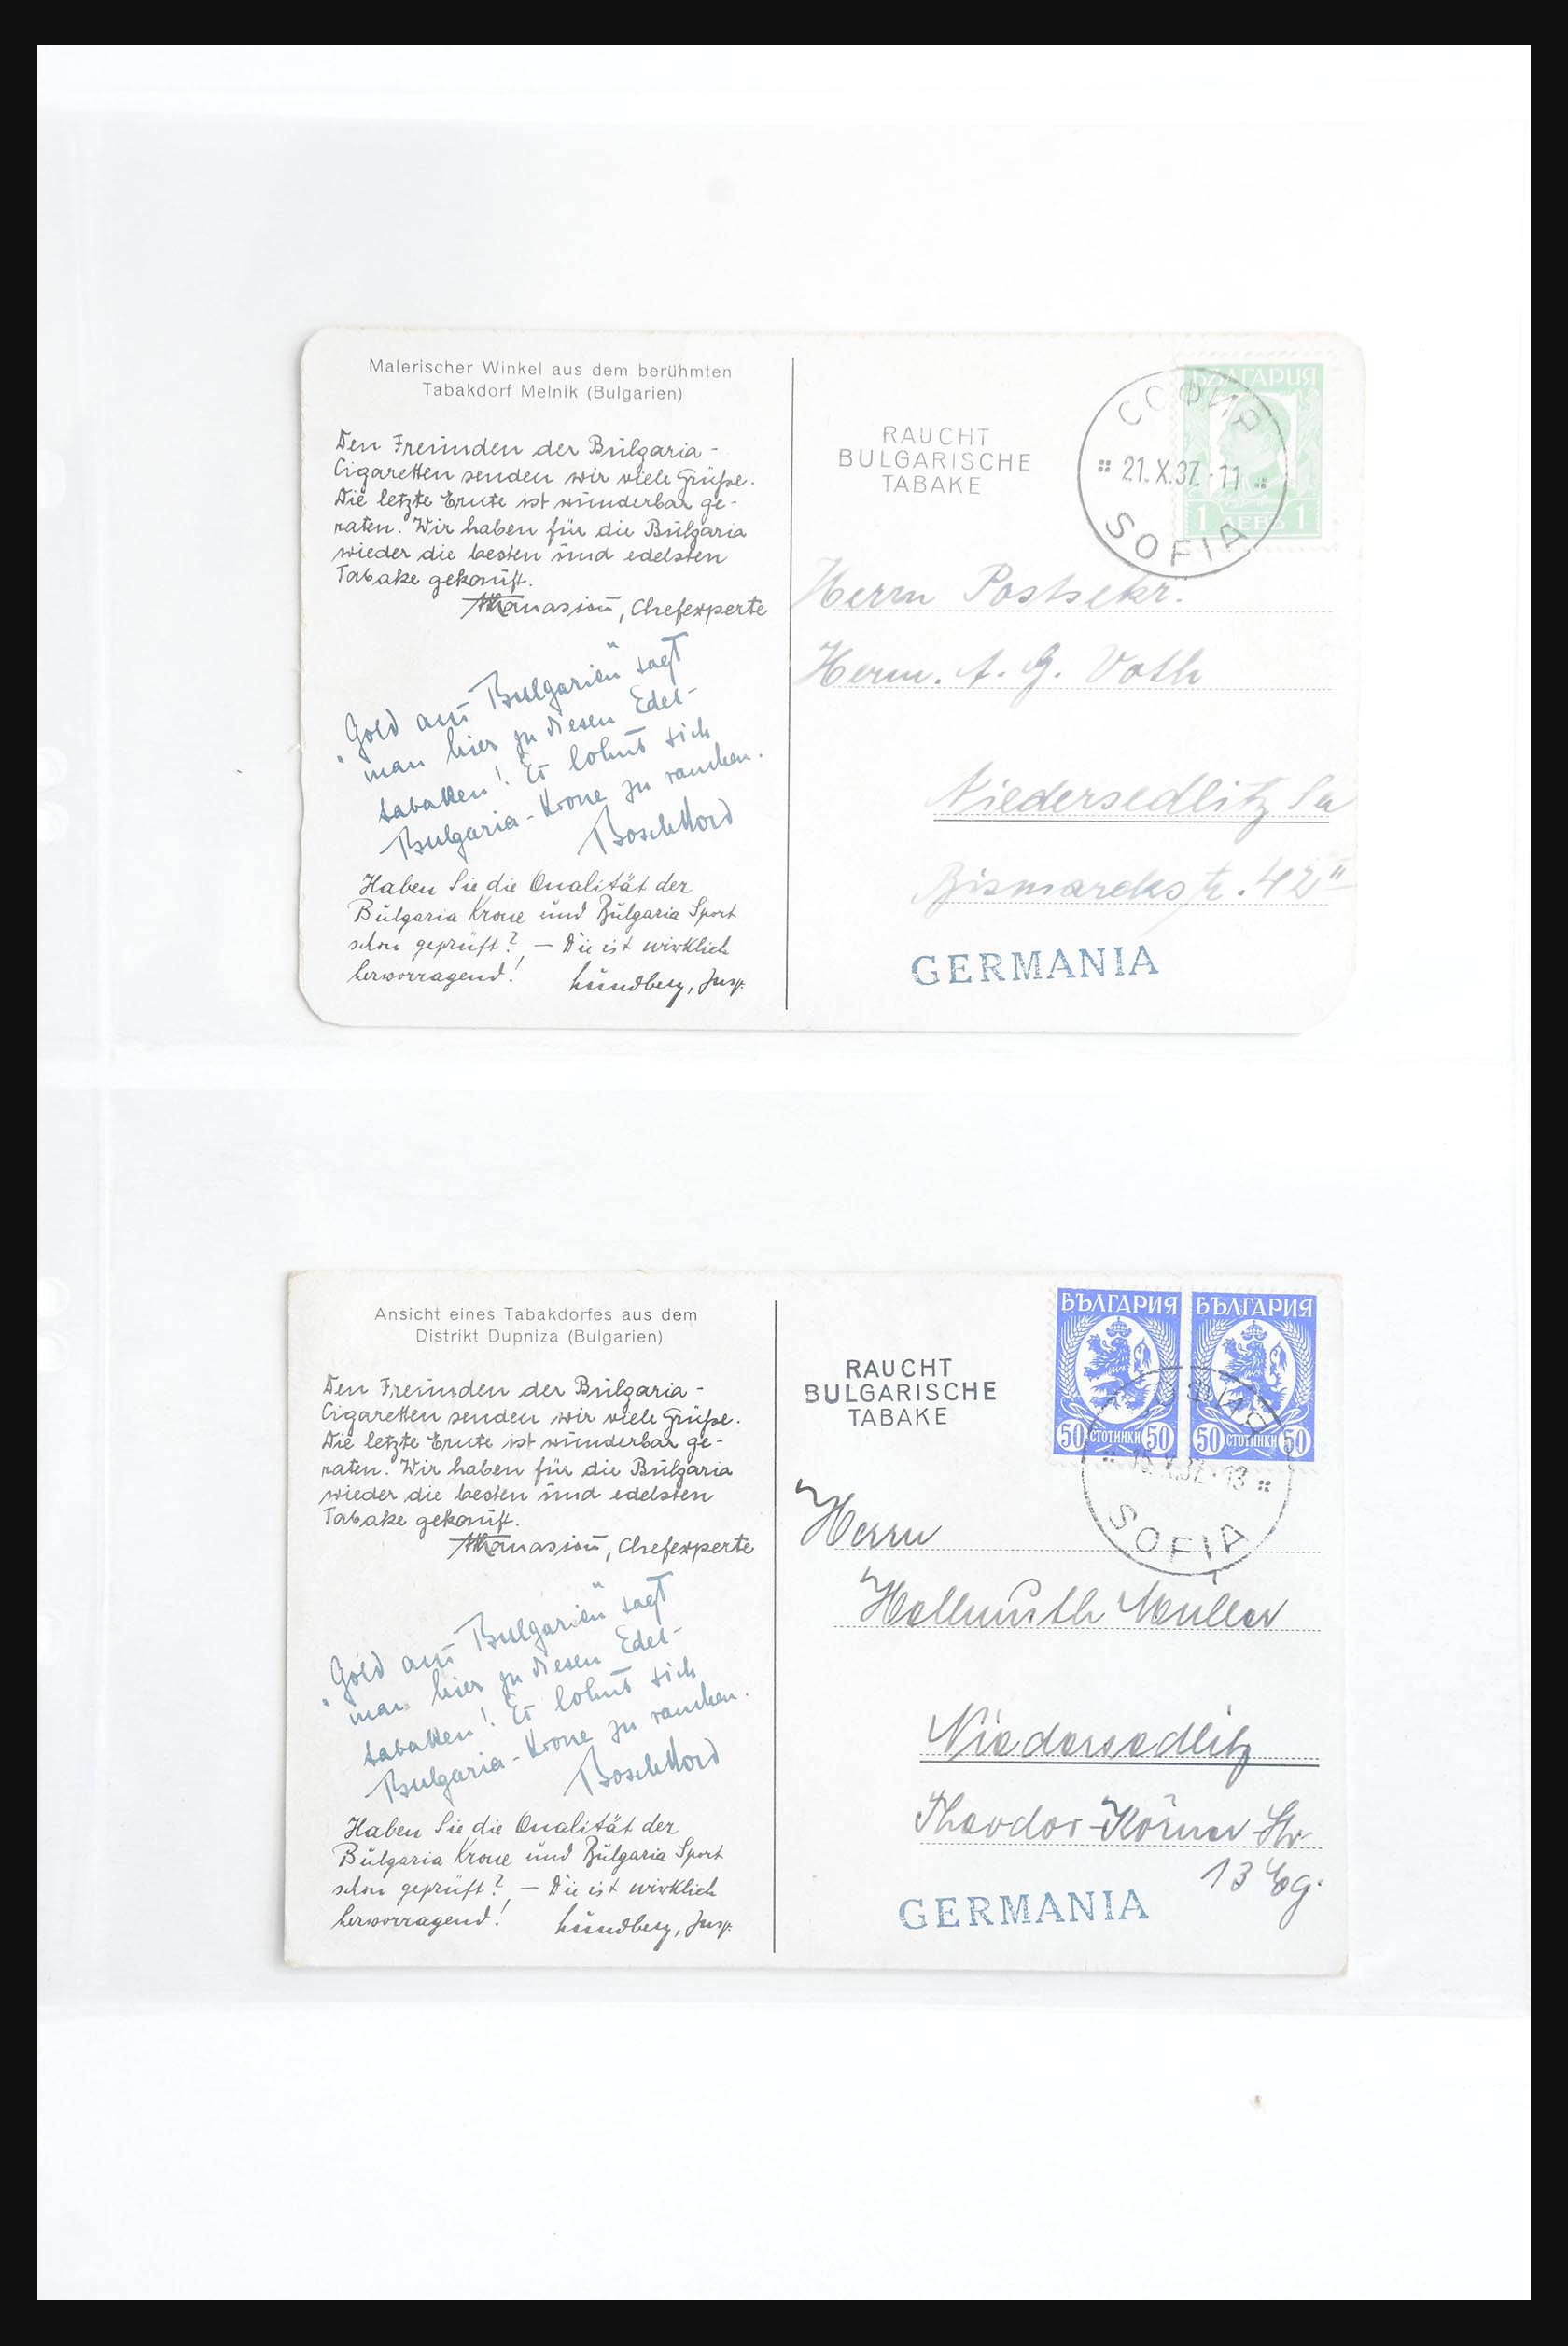 Malerischer Winkel aus dem berühmten
Tabakdorf Melnik (Bulgarien)
Den Freunden der Bulgaria-
Cigaretten senden wir viele Grüße.
Die letzte Ernte ist wunderbar ge-
raten. Wir haben für die Bulgaria
wieder die besten und edelsten
Tabake gekauft.
Athanasiou, Chefexperte
"Gold aus Bulgarien" sagt
man hier zu diesen Edel-
tabakken! Es lohnt sich
Bulgaria-Krone zu rauchen.
Haben Sie die Qualität der
Bulgaria Krone und Bulgaria Sport
schon geprüft? – Die ist wirklich
hervorragend!
Lundberg, Insp.
RAUCHT
BULGARISCHE
TABAKE
БЪЛГАРИЯ
1 ЛЕВЪ 1
СОФИЯ
21.X.37.-11
SOFIA
Herrn Postsekr.
Herm. A. G. Voth
Niedersedlitz Sa
Bismarckstr. 42 II
GERMANIA
Ansicht eines Tabakdorfes aus dem
Distrikt Dupniza (Bulgarien)
Den Freunden der Bulgaria-
Cigaretten senden wir viele Grüße.
Die letzte Ernte ist wunderbar ge-
raten. Wir haben für die Bulgaria
wieder die besten und edelsten
Tabake gekauft.
Athanasiou, Chefexperte
"Gold aus Bulgarien" sagt
man hier zu diesen Edel-
tabakken! Es lohnt sich
Bulgaria-Krone zu rauchen.
Haben Sie die Qualität der
Bulgaria Krone und Bulgaria Sport
schon geprüft? – Die ist wirklich
hervorragend!
Lundberg, Insp.
RAUCHT
BULGARISCHE
TABAKE
БЪЛГАРИЯ БЪЛГАРИЯ
50 СТОТИНКИ 50 50 СТОТИНКИ 50
СОФИЯ
SOFIA
Herrn
Hellmuth Müller
Niedersedlitz
Theodor-Körner-Str
13 Eg.
GERMANIA